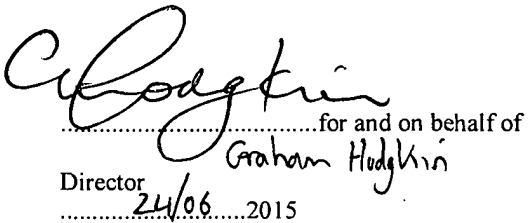 G Hodgkin
....................................for and on behalf of
Graham Hodgkin
Director
............24/06......2015